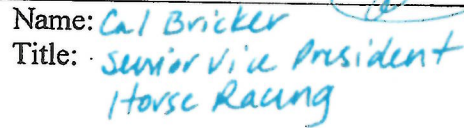 Name: Cal Bricker
Title: Senior Vice President
Horse Racing